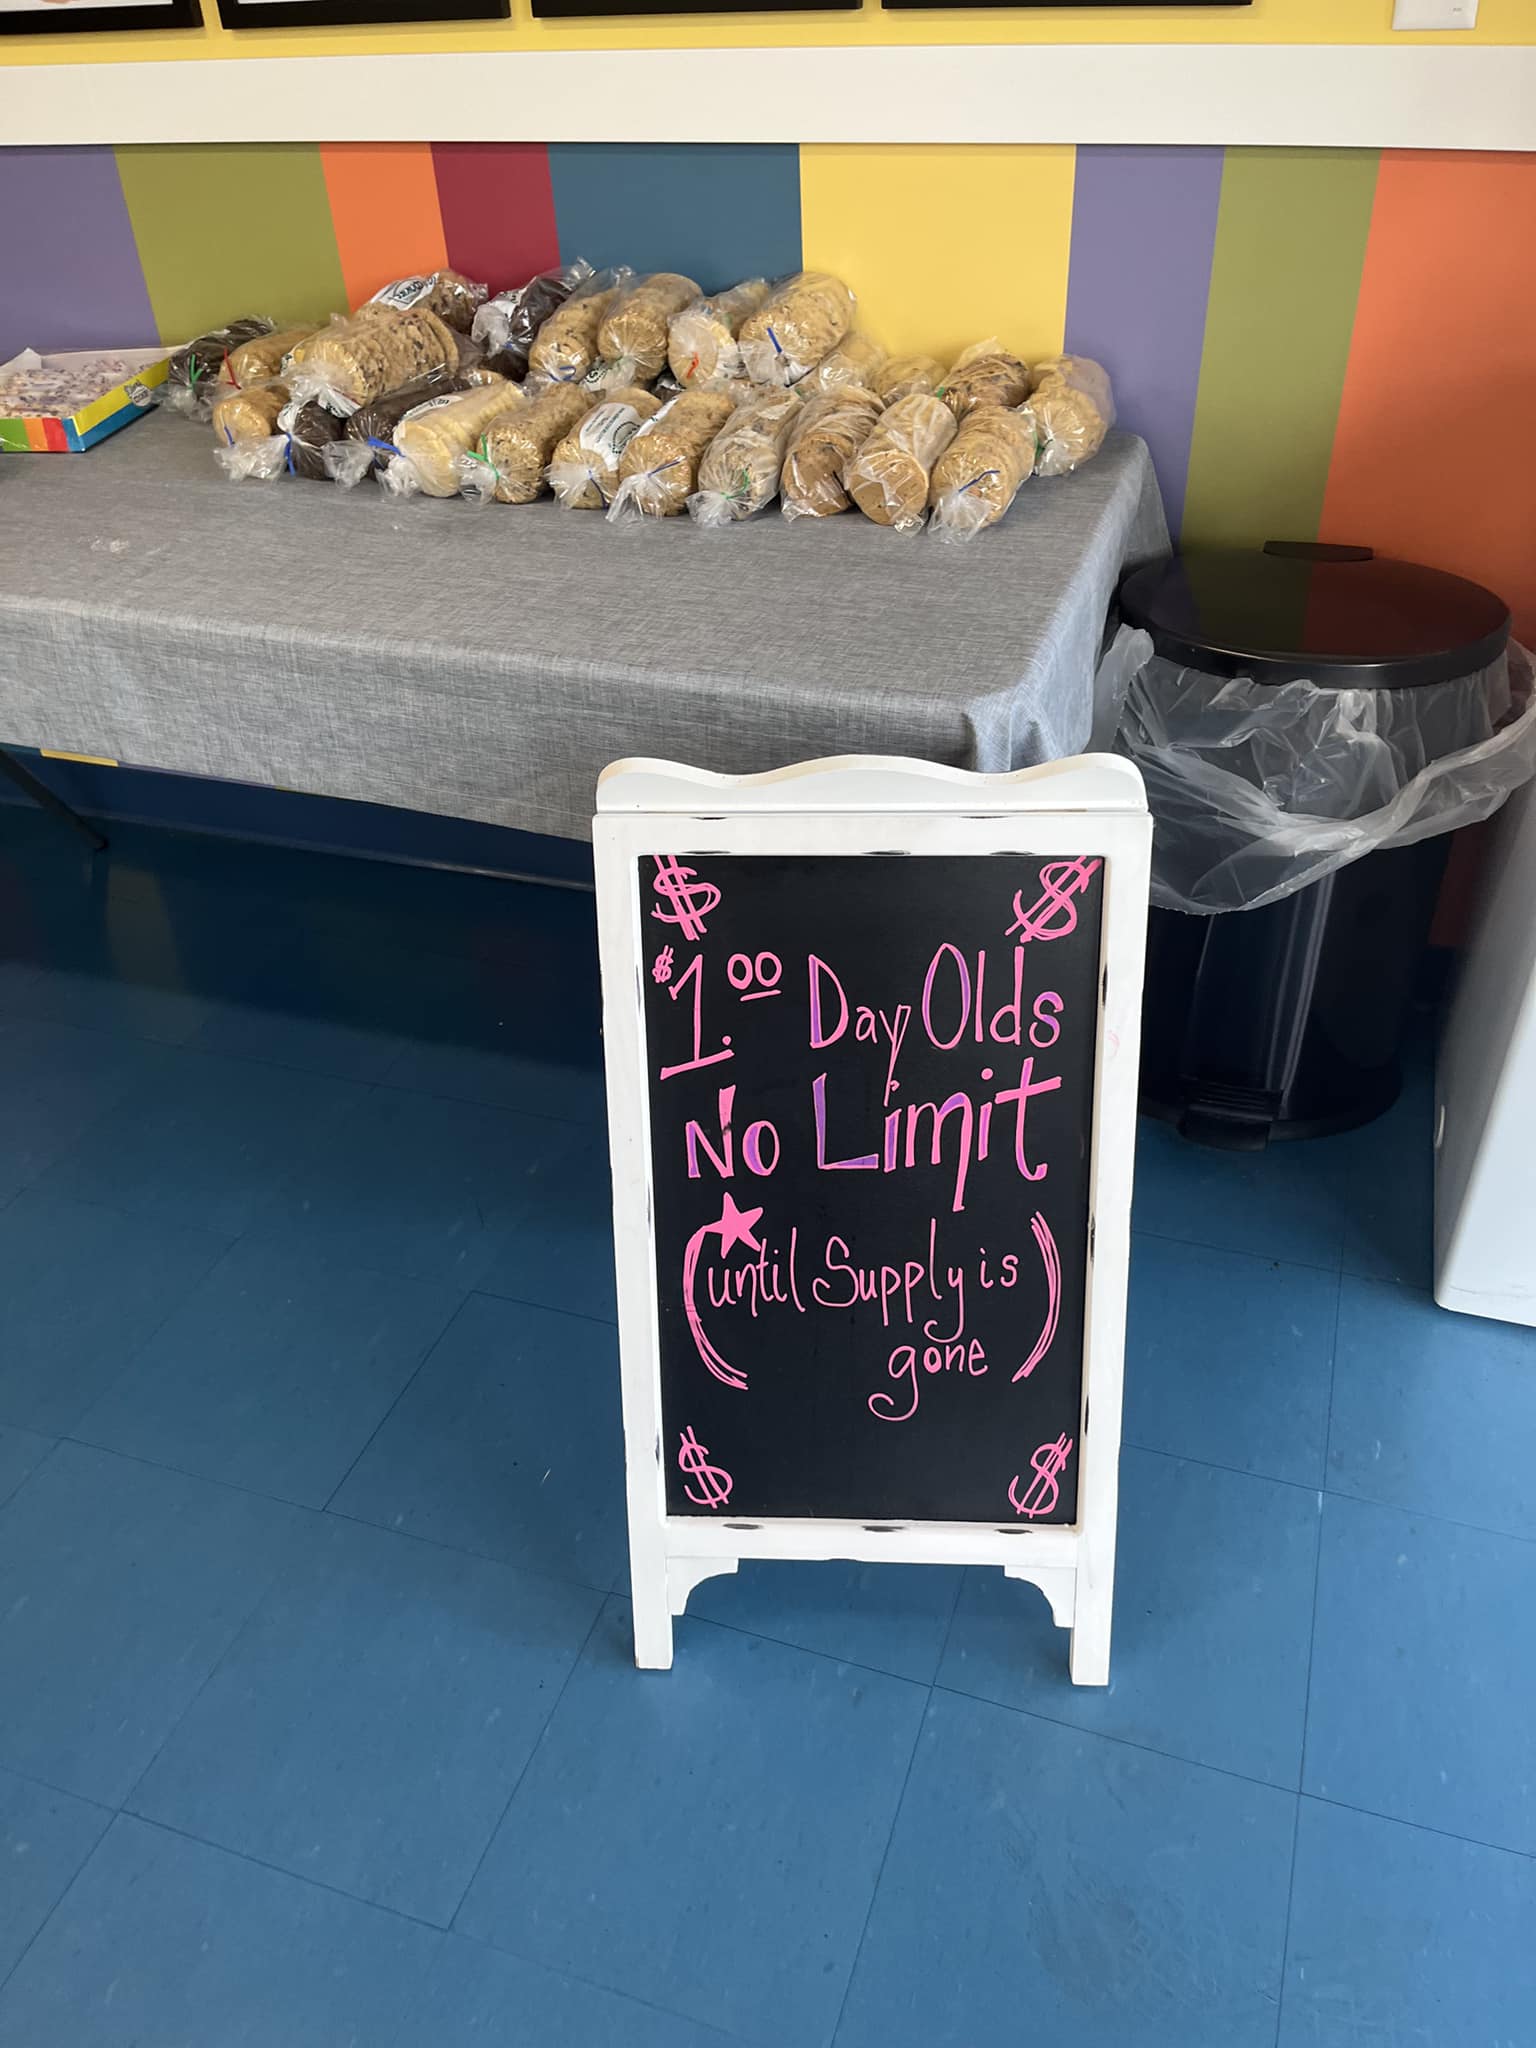 $ $
$1.00 Day Olds
No Limit
(until Supply is
gone)
$ $